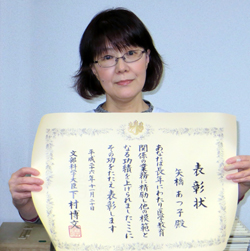 表彰状
矢橋 あつ子殿
あなたは長年にわたり医学教育
関係の業務に精励し他の模範と
なる功績を上げられましたここに
その功をたたえ表彰します
平成二十六年十一月二十日
文部科学大臣 下村博文